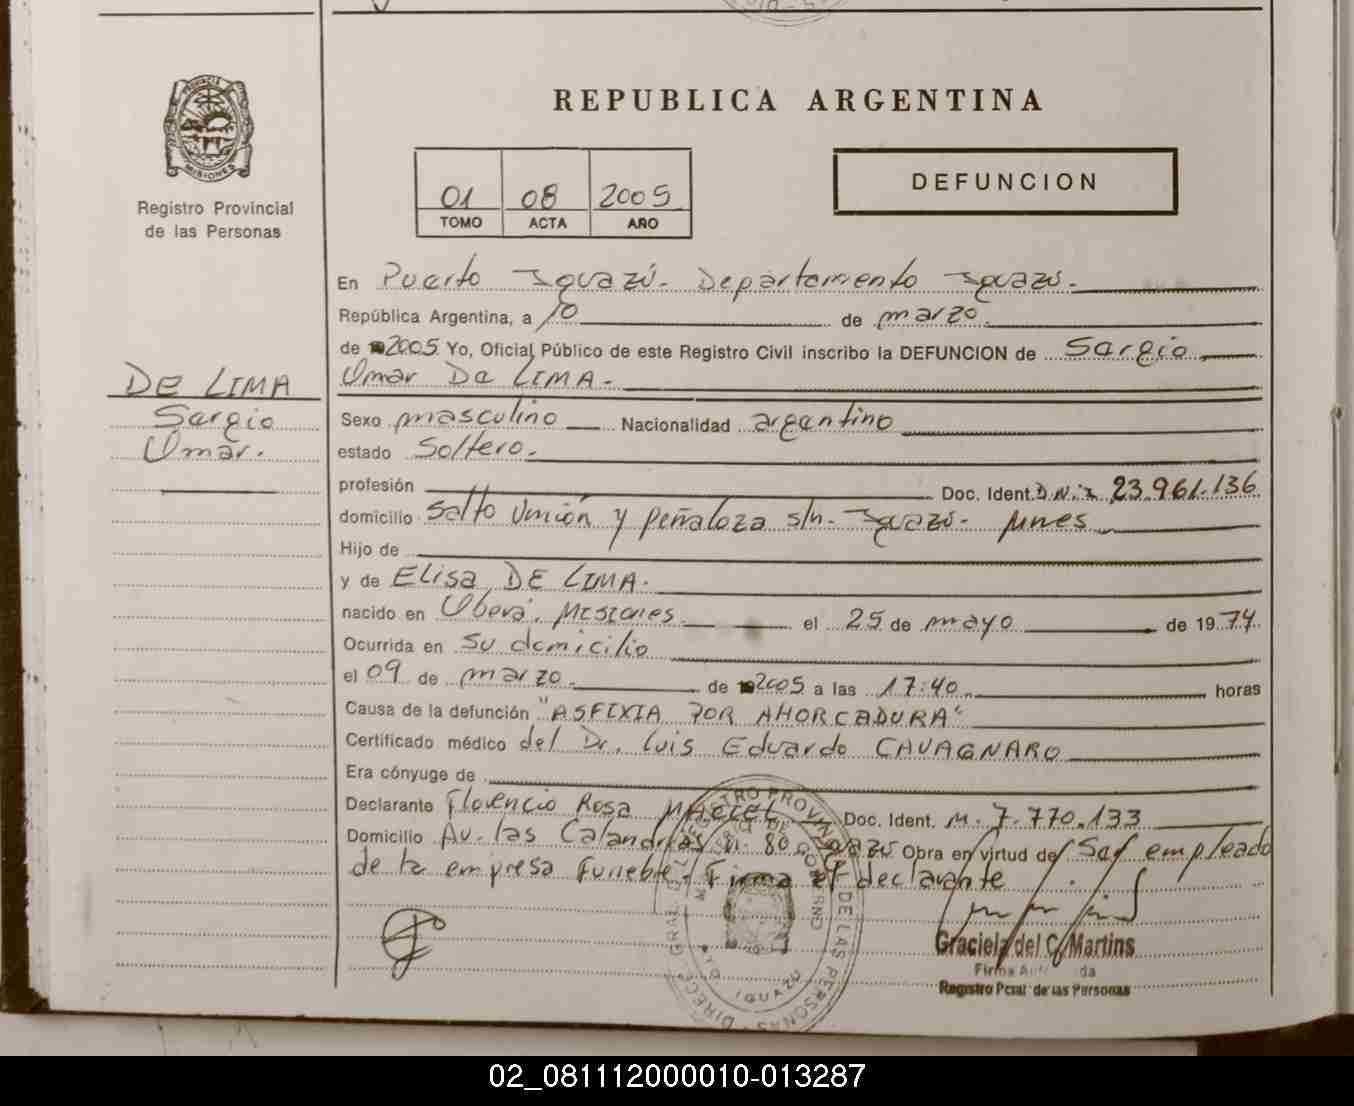 REPUBLICA ARGENTINA
PROVINCIA
MISIONES
Registro Provincial
de las Personas
01 08 2005
TOMO ACTA AÑO
DEFUNCION
En Puerto Iguazú. Departamento Iguazú.
República Argentina, a 10 de marzo
de 2005 Yo, Oficial Público de este Registro Civil inscribo la DEFUNCION de Sergio
Omar De LIMA.
DE LIMA
Sergio
Omar.
Sexo masculino Nacionalidad argentino
estado Soltero.
profesión Doc. Ident. D.N.I. 23.961.136
domicilio Salto Unión y Peñaloza s/n. Iguazú. Mnes
Hijo de
y de Elisa DE LIMA.
nacido en Oberá. Misiones el 25 de mayo de 1974.
Ocurrida en su domicilio
el 09 de marzo de 2005 a las 17:40 horas
Causa de la defunción "ASFIXIA POR AHORCADURA"
Certificado médico del Dr. Luis Eduardo CAVAGNARO
Era cónyuge de
Declarante Florencio Rosa MACIEL Doc. Ident. M. 7.770.133
Domicilio Av. las Calandrias N. 80 Iguazú Obra en virtud de Ser empleado
de la empresa Funebre. Firma el declarante
Graciela del C. Martins
Firma
Registro Pcial de las Personas
02_081112000010-013287